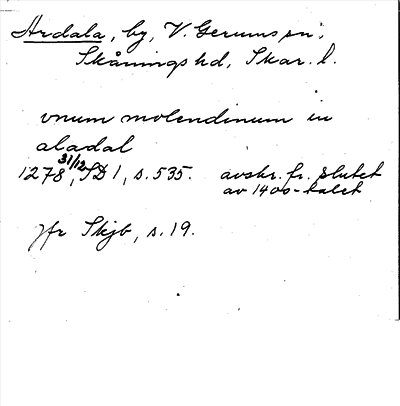 Ardala, by, V. Gerums sn;
Skånings hd, Skar. l.
vnum molendinum in
aladal
1278 31/12, SD 1, s. 535. avskr. fr. slutet
av 1400-talet
Jfr Skjb, s. 19.